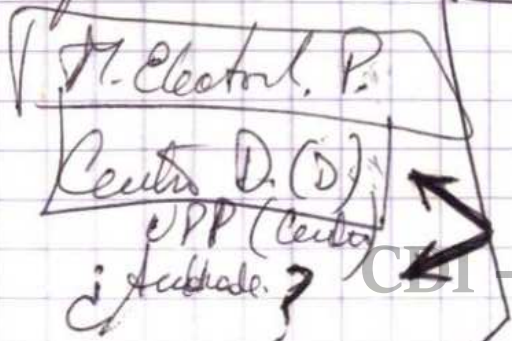 M. Electoral. P.
Centro D. (D)
UPP (Centro)
¿Andrade?
CDI -